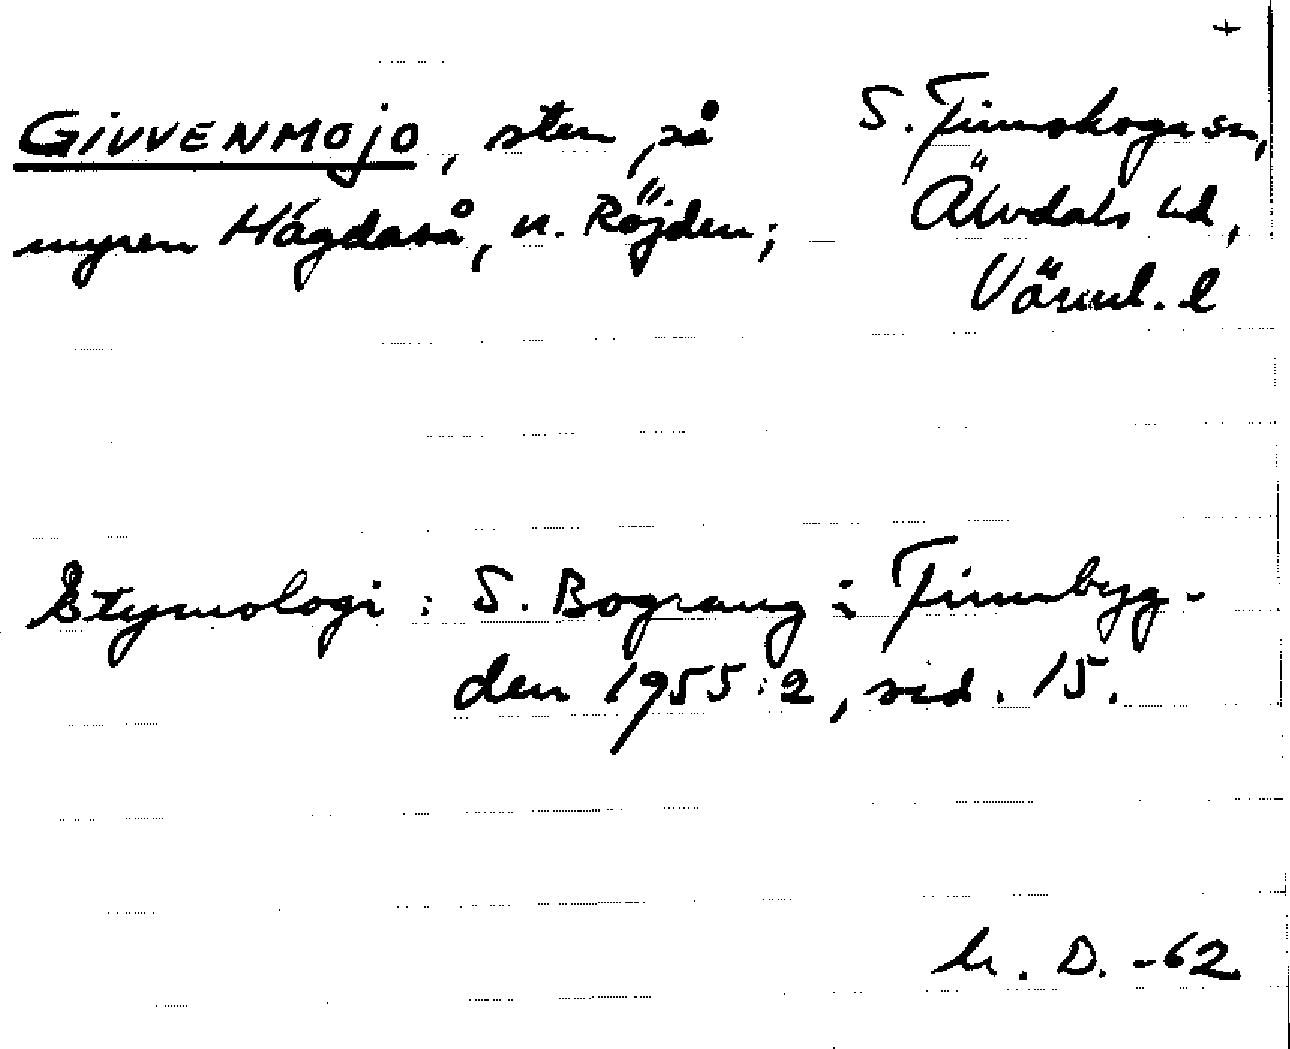 +
GIVVENMOJO, sten på
myren Hágdaså, n. Röjden;
S. Finnskoga sn,
Älvdals hd,
Värml. l
Etymologi: S. Bograng i Finnbyg-
den 1955:2, sid. 15.
D. -62